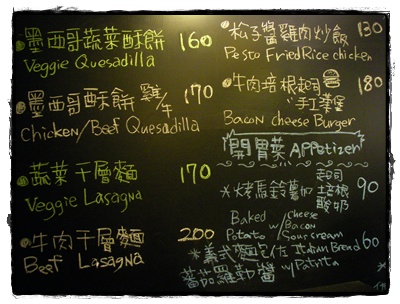 墨西哥蔬菜酥餅 160
Veggie Quesadilla
墨西哥酥餅 雞/牛 170
Chicken/Beef Quesadilla
蔬菜千層麵 170
Veggie Lasagna
牛肉千層麵 200
Beef Lasagna
松子醬雞肉炒飯 130
Pesto Fried Rice chicken
牛肉培根起司 180
手工漢堡
Bacon cheese Burger
開胃菜 Appetizer
烤馬鈴薯加 起司 培根 酸奶 90
Baked Potato w/ cheese Bacon Sour cream
義式麵包佐 Italian Bread 60
蕃茄羅勒醬 w/